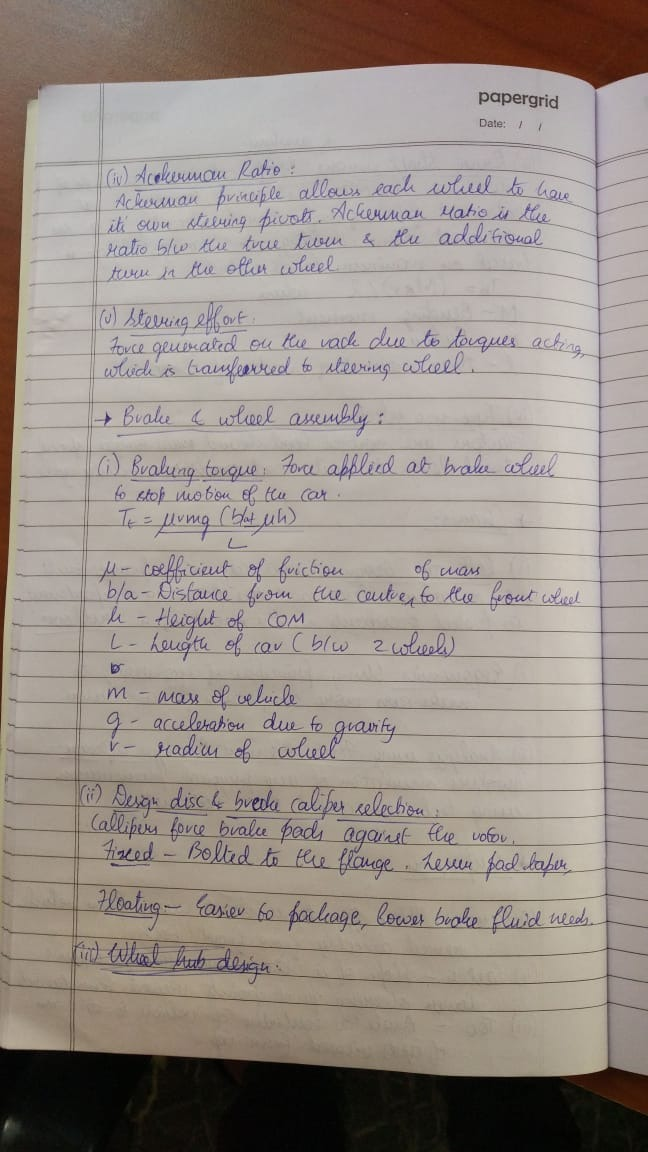 papergrid
Date: / /
(iv) Ackerman Ratio :
Ackerman principle allows each wheel to have
its own steering pivots. Ackerman ratio is the
ratio b/w the true turn & the additional
turn in the other wheel.
(v) Steering effort :
Force generated on the rack due to torques acting,
which is transferred to steering wheel.
→ Brake & wheel assembly :
(i) Braking torque : Force applied at brake wheel
to stop motion of the car.
T = μrmg (b/a+ μh)
L
μ - coefficient of friction of mass
b/a - Distance from the centre to the front wheel
h - Height of COM
L - Length of car ( b/w 2 wheels)
m - mass of vehicle
g - acceleration due to gravity
r - radius of wheel
(ii) Design disc & brake caliper selection :
Callipers force brake pads against the rotor.
Fixed - Bolted to the flange. Lesser pad taper,
Floating - Easier to package, lower brake fluid needs.
(iii) Wheel hub design :